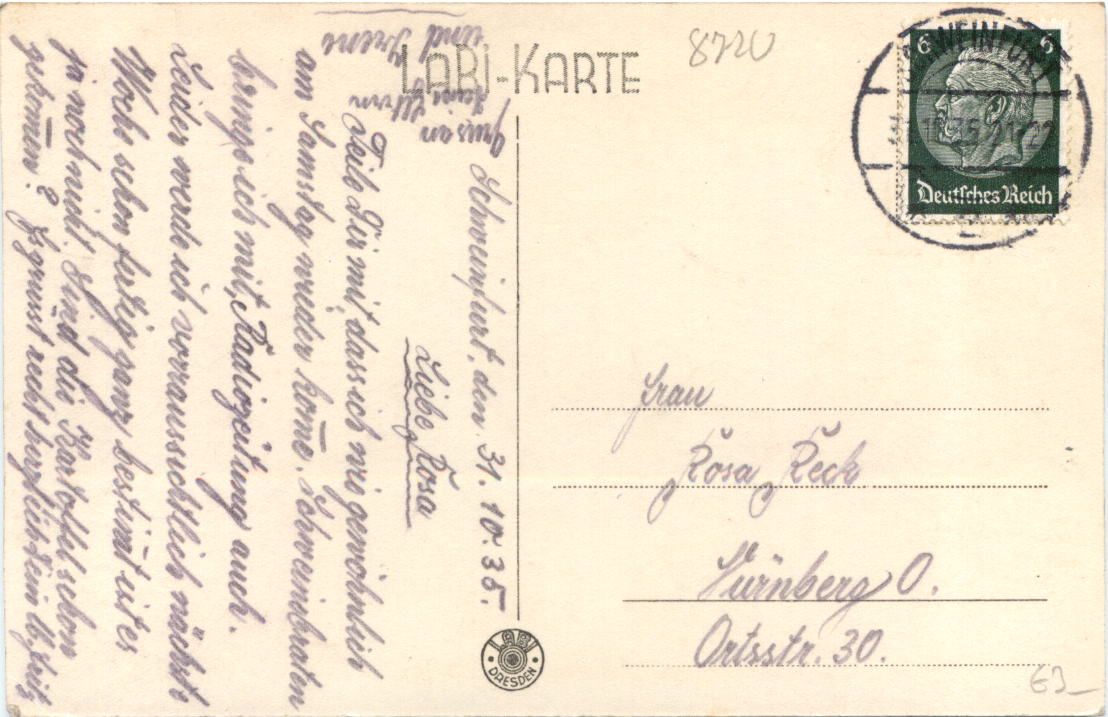 LABI-KARTE
8720
SCHWEINFURT
6 6
Deutsches Reich
Schweinfurt, den 31.10.35.
Liebe Rosa
Teile Dir mit, dass ich wie gewöhnlich
am Samstag wieder kom̄e. Schweinebraten
bringe ich mit, Radiozeitung auch.
Leider werde ich voraussichtlich nächste
Woche schon fertig ganz bestim̄t ist es
ja noch nicht. Sind die Kartoffel schon
gekom̄en? Es grüsst recht herzlich Dein lb. Fritz
Gruss an
Deine Eltern
und Irene
Frau
Rosa Reck
Nürnberg O.
Ortsstr. 30.
LABI
DRESDEN
63